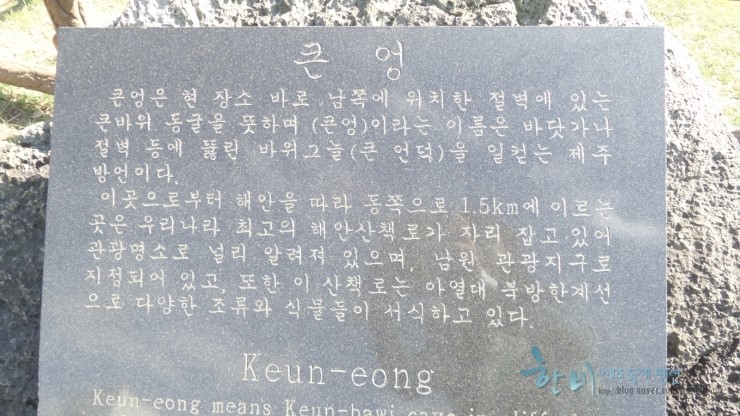 큰 엉
큰엉은 현 장소 바로 남쪽에 위치한 절벽에 있는
큰바위 동굴을 뜻하며 (큰엉)이라는 이름은 바닷가나
절벽 등에 뚫린 바위그늘(큰 언덕)을 일컫는 제주
방언이다.
이곳으로부터 해안을 따라 동쪽으로 1.5km에 이르는
곳은 우리나라 최고의 해안산책로가 자리 잡고 있어
관광명소로 널리 알려져 있으며, 남원 관광지구로
지정되어 있고, 또한 이 산책로는 아열대 북방한계선
으로 다양한 조류와 식물들이 서식하고 있다.
Keun-eong
Keun-eong means Keun-bawi cave in
한내
http://blog.naver.com/